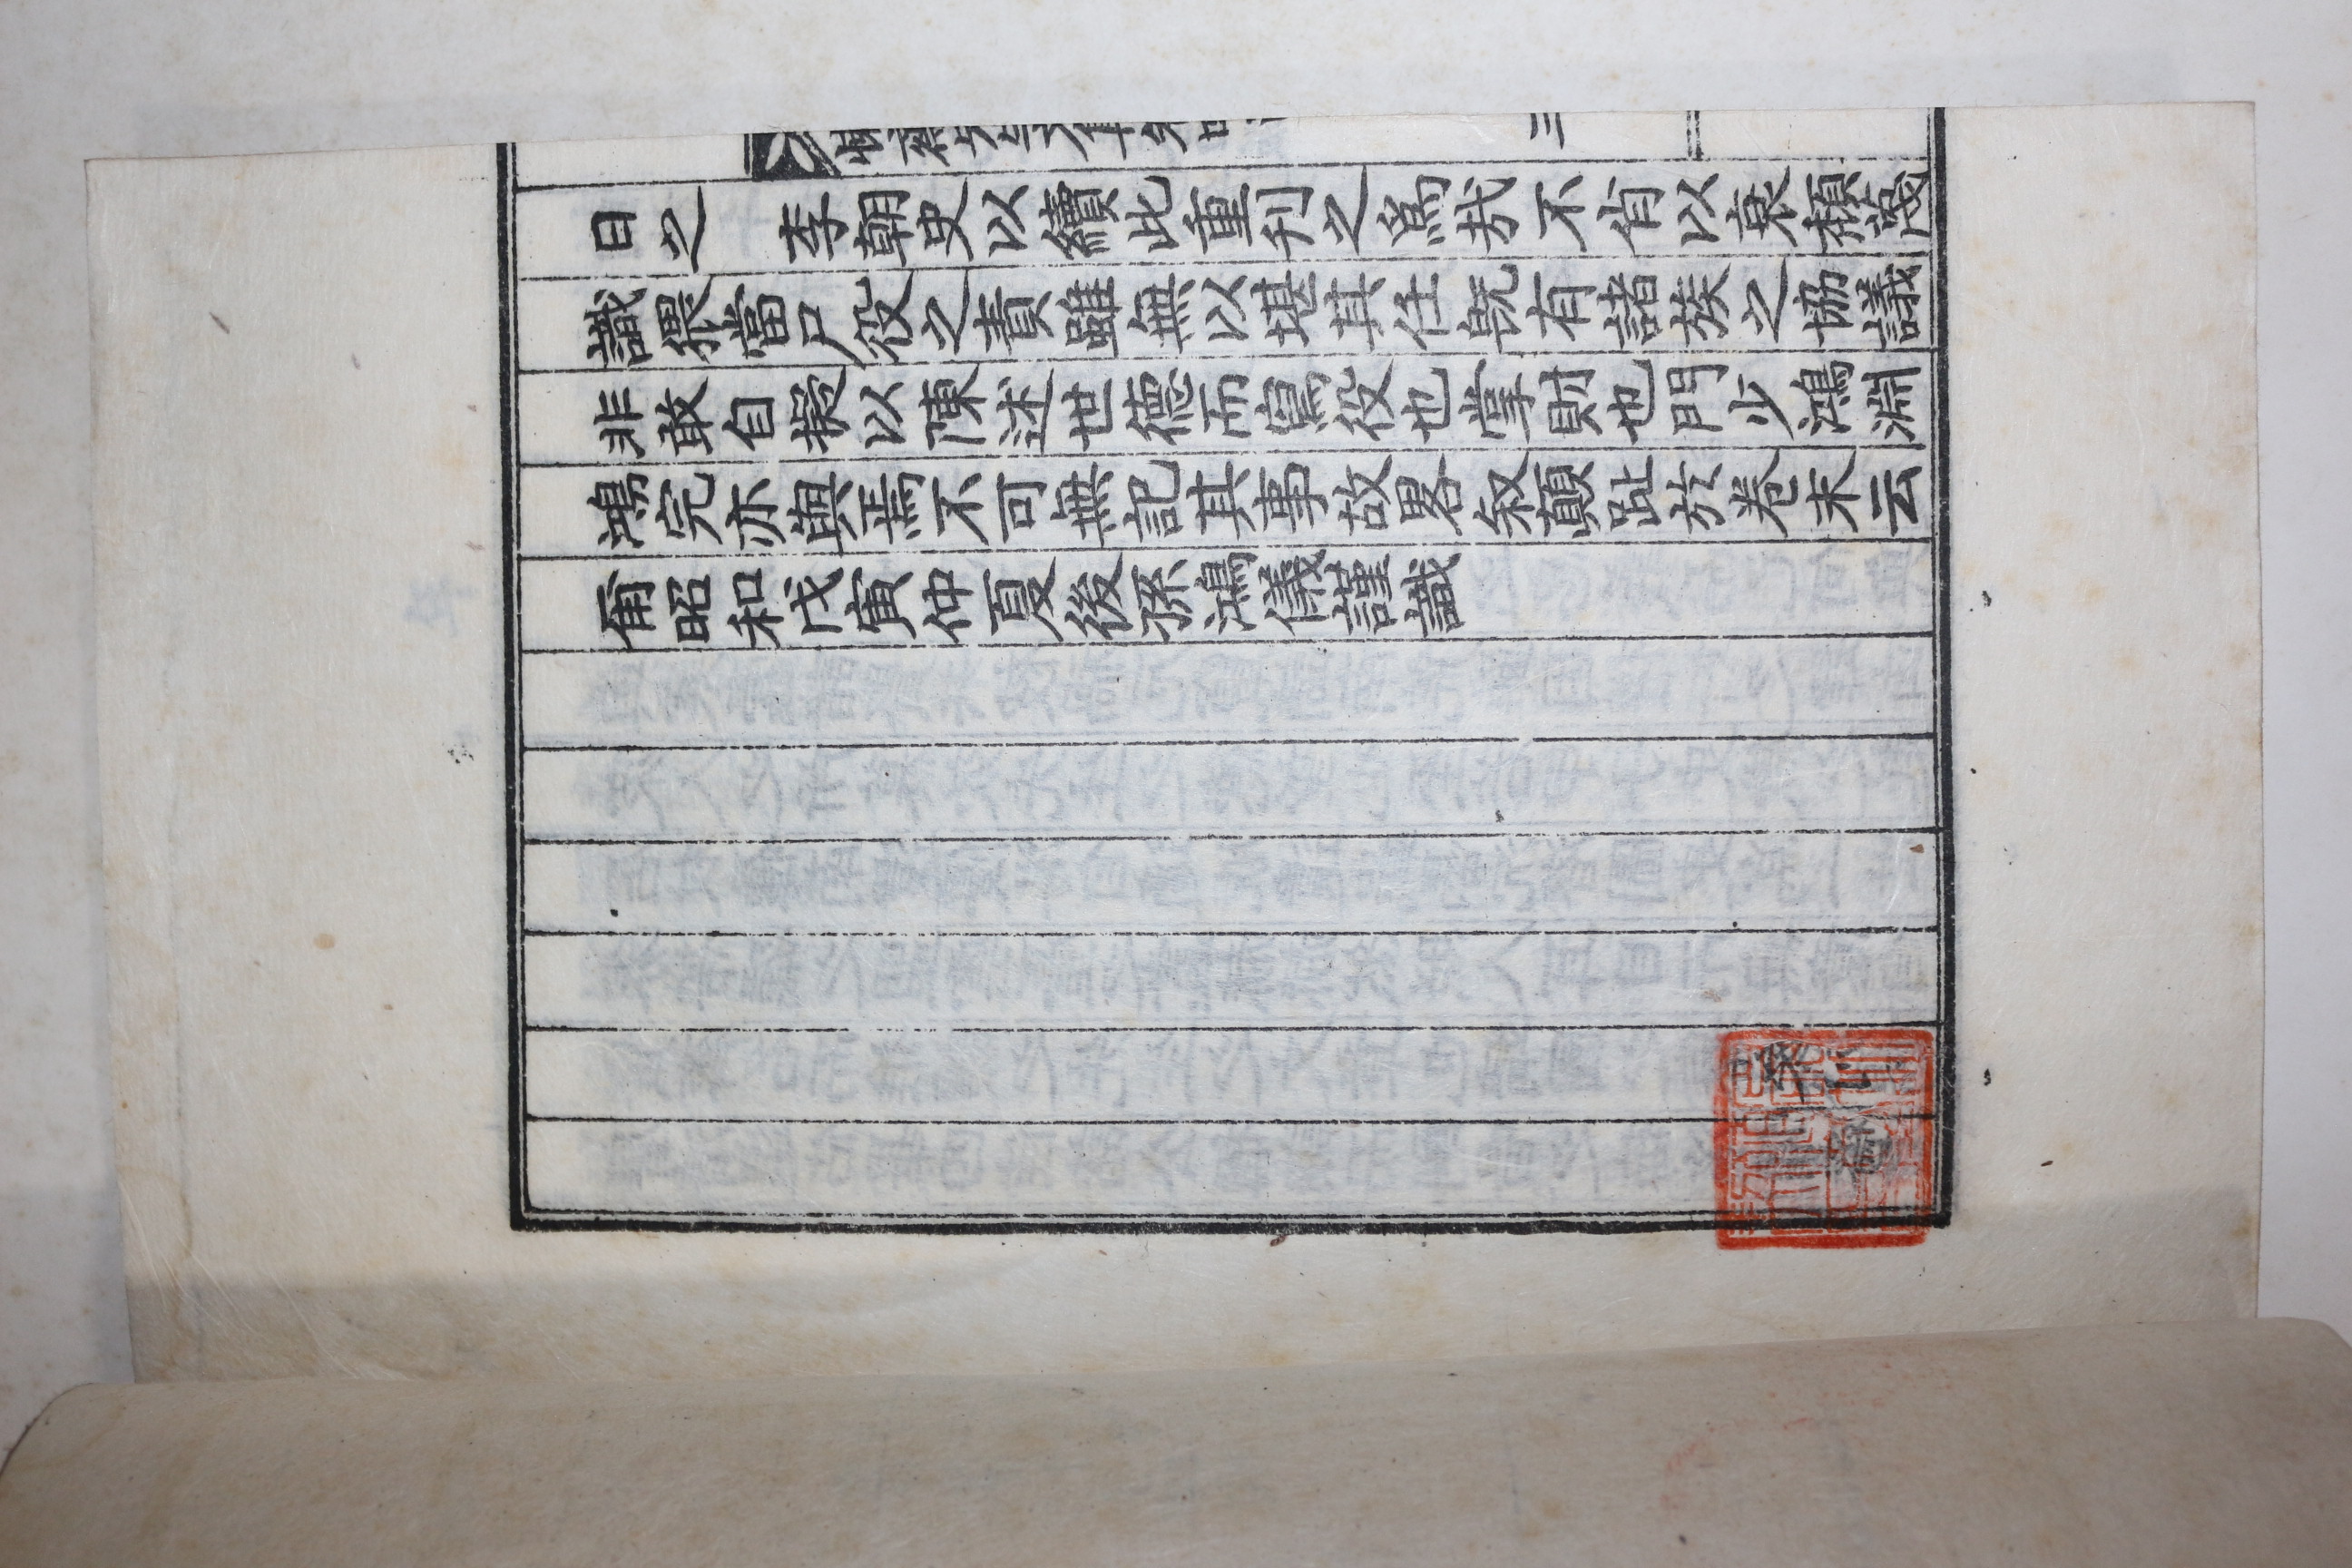 日之　李朝史以續此重刊之爲哉不肖以衰頹蔑
識猥當尸役之責雖無以堪其任旣有諸族之協議
非敢自擬以陳述世德而寫役也掌財也門少鴻淵
鴻完亦與焉不可無記其事故畧叙顚趾於卷末云
爾昭和戊寅仲夏後孫鴻儀謹識
三